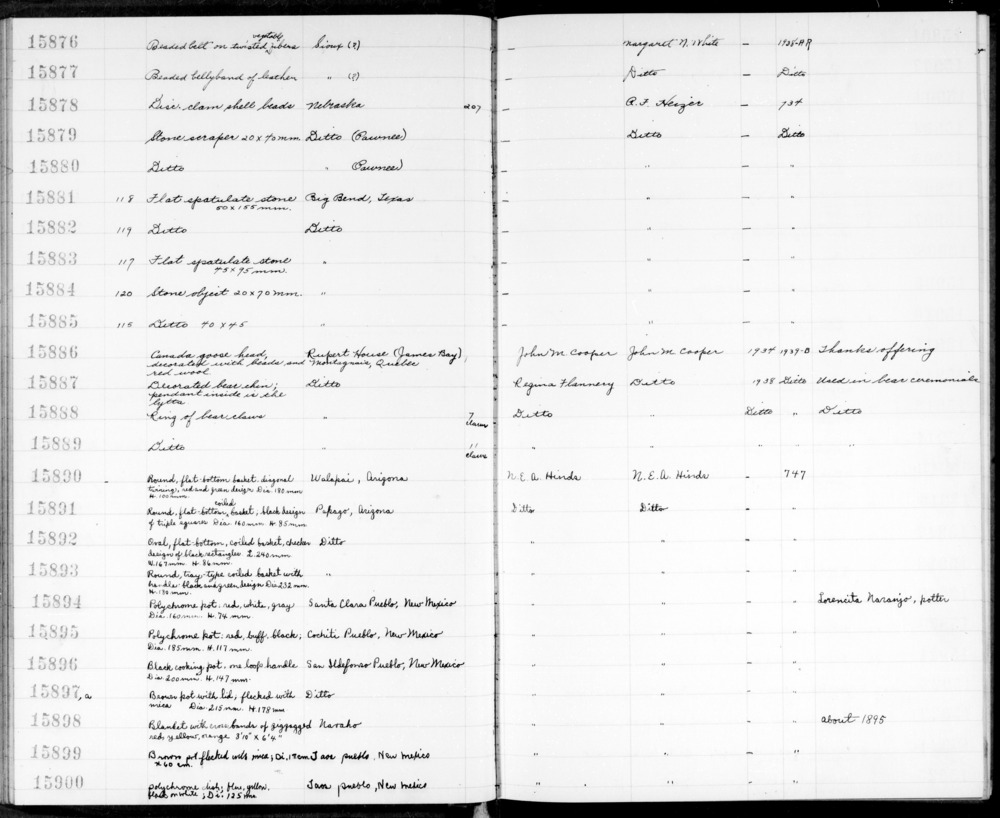 15876 Beaded belt on twisted vegetable fibers Sioux (?) — Margaret N. White — 1938-AR
15877 Beaded bellyband of leather " (?) — Ditto — Ditto
15878 Disc. clam shell beads Nebraska 207 — R.F. Heizer — 734
15879 Stone scraper 20 x 40 mm. Ditto (Pawnee) — Ditto — Ditto
15880 Ditto " (Pawnee) — " — "
15881 118 Flat spatulate stone Big Bend, Texas — " — "
50 x 155 mm.
15882 119 Ditto Ditto — " — "
15883 117 Flat spatulate stone " — " — "
45 x 95 mm.
15884 120 Stone object 20 x 70 mm. " — " — "
15885 115 Ditto 40 x 45 " — " — "
15886 Canada goose head, Rupert House (James Bay) John M. Cooper John M Cooper 1934 1939-B Thanks offering
decorated with beads and Montagnais, Quebec
red wool
15887 Decorated bear chin; Ditto Regina Flannery Ditto 1938 Ditto Used in bear ceremonials
pendant inside is the
lytta
15888 Ring of bear claws " 7 claws Ditto " Ditto " Ditto
15889 Ditto " 11 claws " " " " "
15890 Round, flat-bottom basket, diagonal Walapai, Arizona N.E.A. Hinds N.E.A. Hinds — 747
twining; red and green design Dia. 180 mm
H. 100 mm.
15891 Round, flat-bottom, coiled basket, black design Papago, Arizona Ditto Ditto — "
of triple squares Dia. 160 mm. H. 85 mm.
15892 Oval, flat-bottom, coiled basket, checker Ditto " " — "
design of black rectangles L. 240 mm
W. 167 mm H. 86 mm.
15893 Round, tray-type coiled basket with " " " — "
handle: black and green design Dia 232 mm.
H. 130 mm.
15894 Polychrome pot: red, white, gray Santa Clara Pueblo, New Mexico " " — " Lorencita Naranjo, potter
Dia. 160 mm. H. 74 mm.
15895 Polychrome pot: red, buff, black; Cochiti Pueblo, New Mexico " " — "
Dia. 185 mm. H. 117 mm.
15896 Black cooking pot, one loop handle San Ildefonso Pueblo, New Mexico " " — "
Dia 200 mm. H. 147 mm.
15897, a Brown pot with lid; flecked with Ditto " " — "
mica Dia. 215 mm. H. 178 mm
15898 Blanket with cross bands of zigzagged Navaho " " — " about 1895
red, yellow, orange 3'10" x 6'4"
15899 Brown pot flecked with mica; Di. 17 cm Taos pueblo, New Mexico " " — "
x 60 cm.
15900 polychrome dish; blue, yellow, Taos pueblo, New Mexico " " — "
black on white; Di. 125 mm